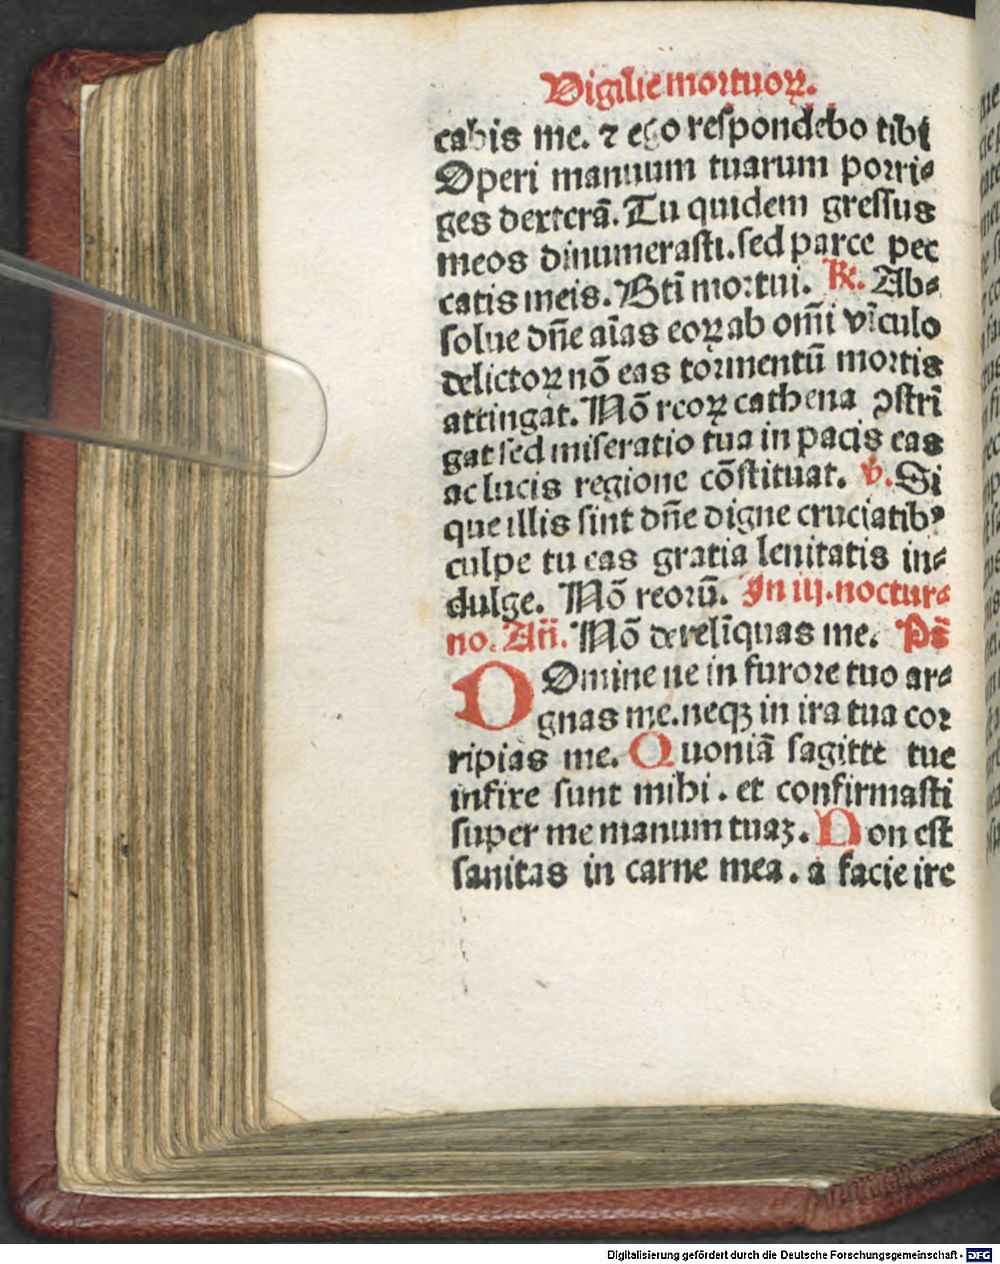 Vigilie mortuoꝝ.
cabis me. ⁊ ego respondebo tibi
Operi manuum tuarum porri⸗
ges dexterā. Tu quidem gressus
meos dinumerasti. sed parce pec
catis meis. Bti mortui. ℟. Ab⸗
solue dn̄e aīas eoꝝ ab om̄i vīculo
delictoꝝ nō eas tormentū mortis
attingat. Nō reoꝝ cathena ꝯstrī
gat sed miseratio tua in pacis eas
ac lucis regione cōstituat. ℣. Si
que illis sint dn̄e digne cruciatibꝰ
culpe tu eas gratia lenitatis in⸗
dulge. Nō reorū. In iij. noctur⸗
no. Añ. Nō derelīquas me. Ps̄
DOmine ne in furore tuo ar⸗
gnas me. neqꝫ in ira tua cor
ripias me. Quoniā sagitte tue
infixe sunt mihi. et confirmasti
super me manum tuaꝫ. Non est
sanitas in carne mea. a facie ire
Digitalisierung gefördert durch die Deutsche Forschungsgemeinschaft - DFG